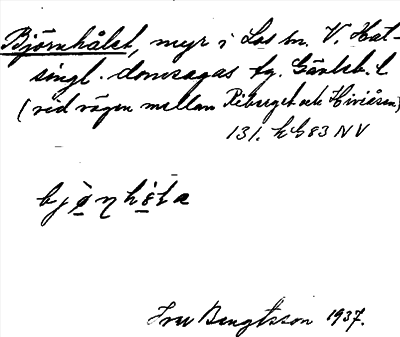 Björnhålet, myr i Los sn. V. Häl-
singl. domsagas tg. Gävleb. l
(vid vägen mellan Riberget och Hiviåsen)
131. h b 83 NV
bjö̀ṇhò̱ḷa
Ivar Bengtsson 1937.